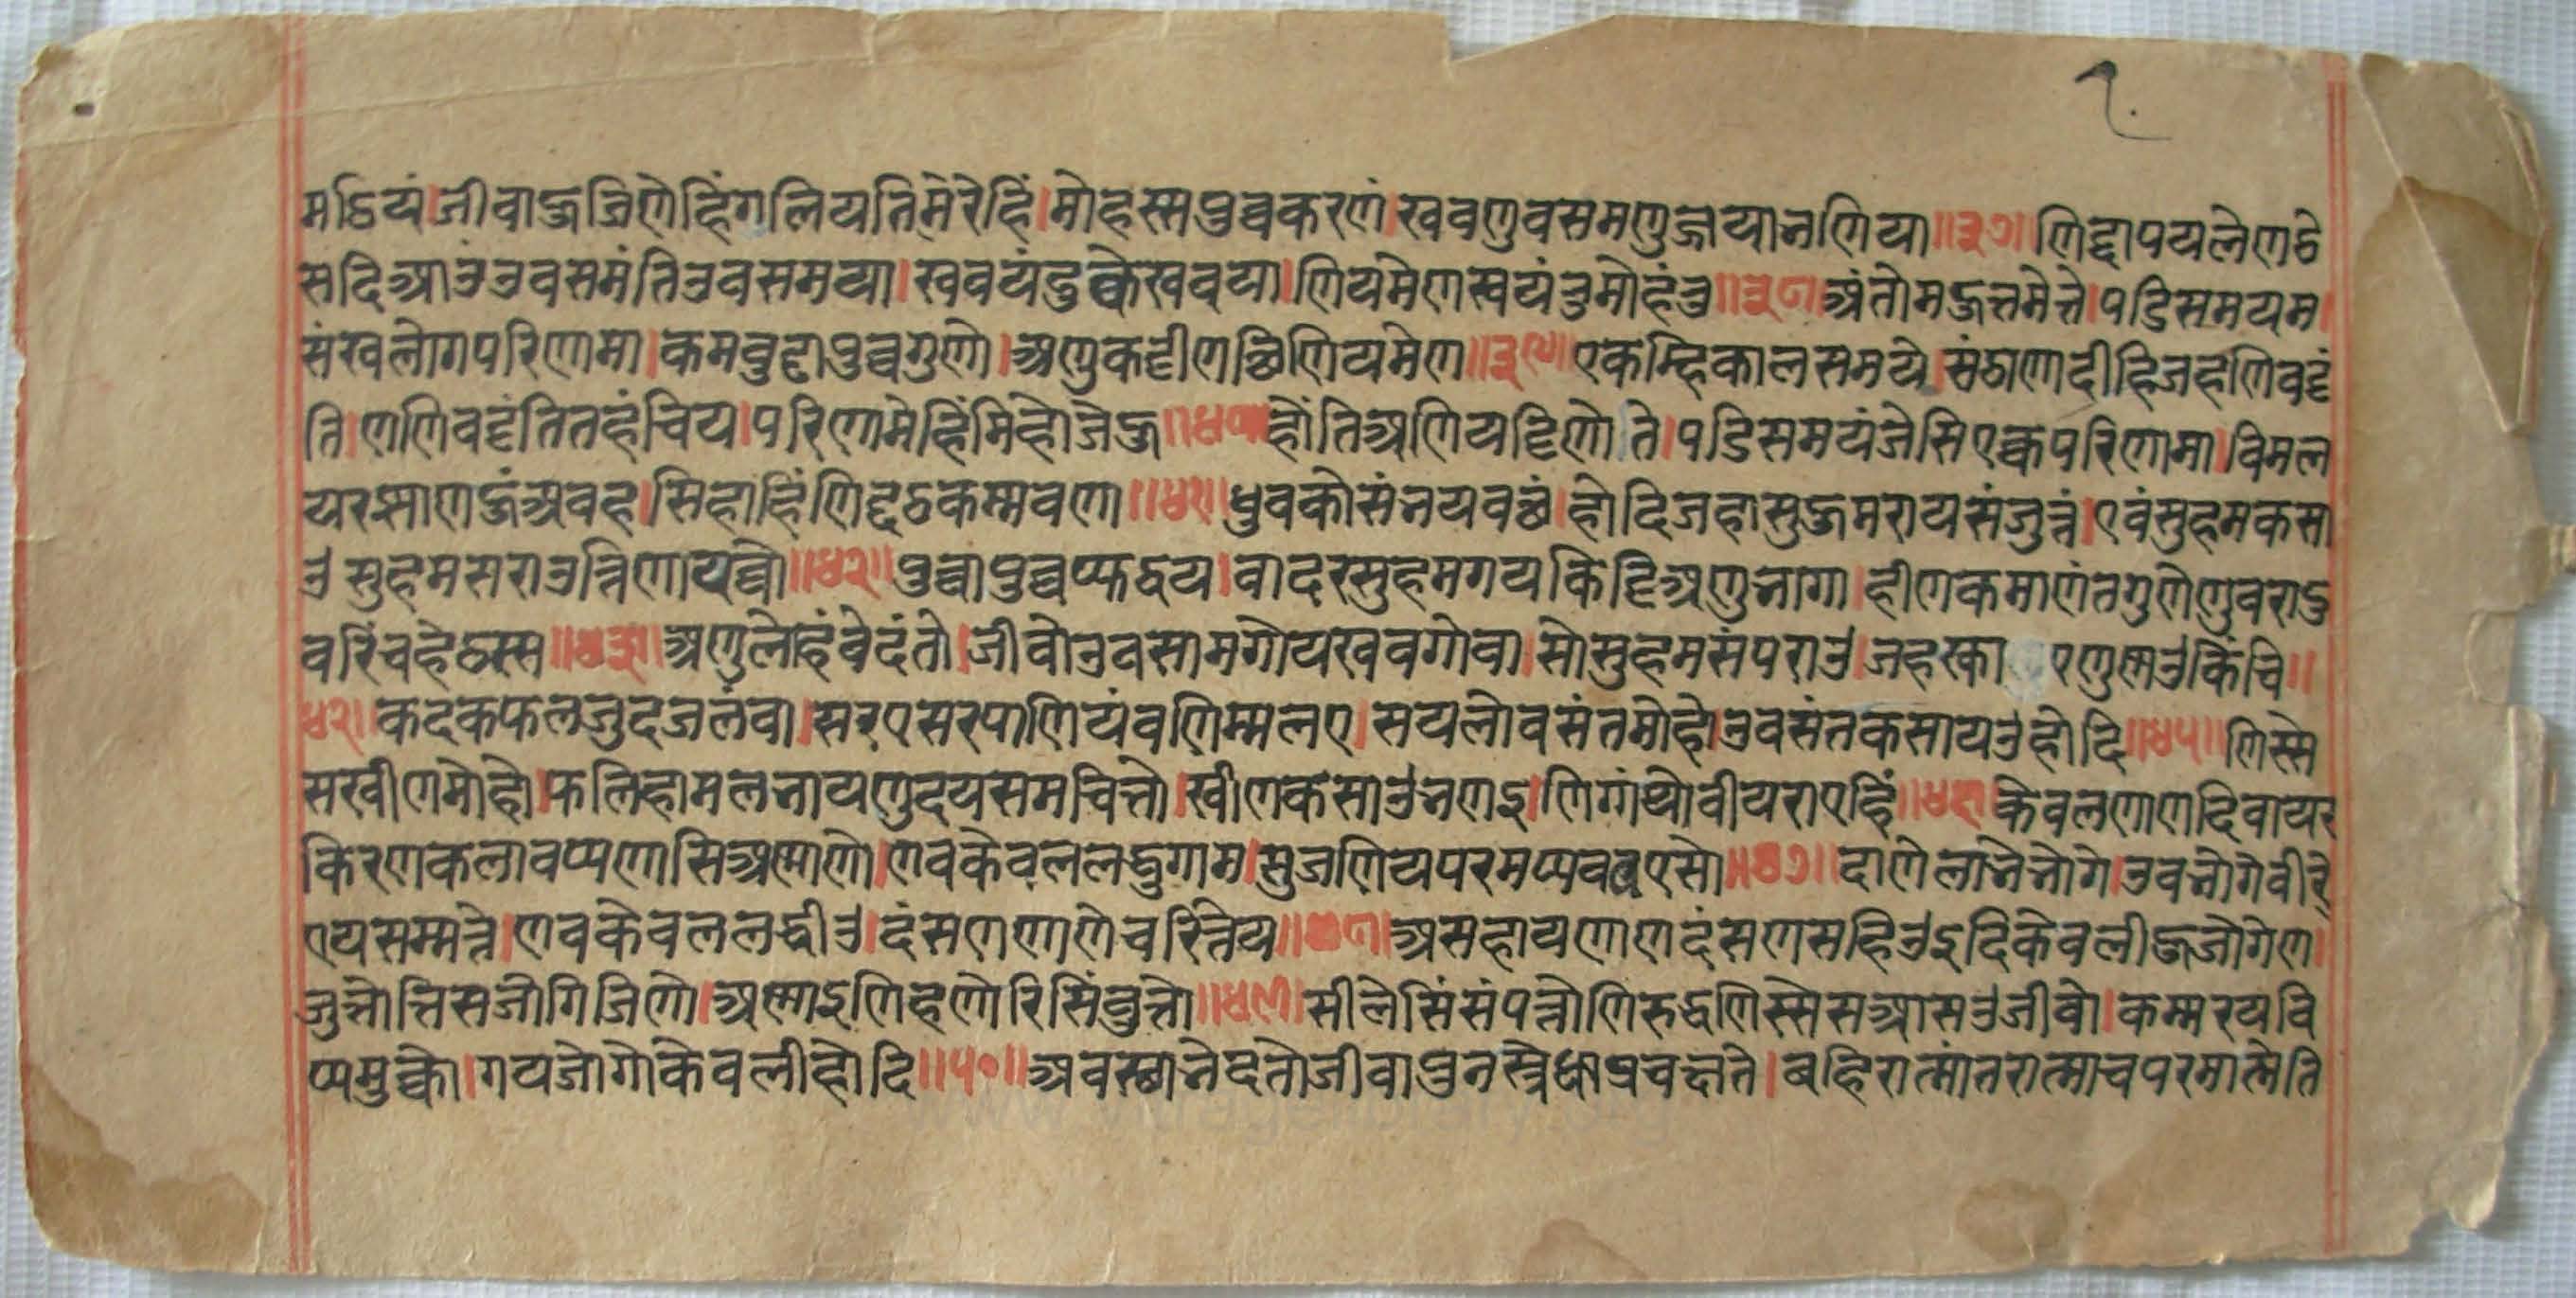 २.
मठियं।जीवाजजिणेहिंगलियतिमेरेहिं।मोहस्सपुव्वकरणं।खवणुवसमणुज्जयानणिया॥३७॥णिद्दापयलेणठे
सदिआउउवसमंतिउवसमया।खवयंढुक्केखवया।णियमेणखवयंतुमोहंतु॥३८॥अंतोमज्जत्तमेत्ते।पडिसमयम।
संखलोगपरिणमा।कमवुढ्ढापुव्वगुणे।अणुकट्टीणछिणियमेण॥३९॥एकम्हिकालसमये।संठाणदीहिजहणिवट्टं
ति।णणिवट्टंतितहंचिय।परिणामेहिंमिहोजेज॥४०॥होंतिअणियट्टिणोते।पडिसमयंजेसिएक्कपरिणामा।विमल
यरझाणजंअवह।सिहाहिंणिद्दठकम्मवणा॥४१॥धुवकोसंनयवछं।होदिजहासुज्जमरायसंजुत्तं।एवंसुहमकसा
उ सुहमसराउत्तिणायव्वो॥४२॥पुव्वापुव्वप्फढ्ढय।वादरसुहमगयकिट्टिअणुनागा।हीणकमाणंतगुणेणुवराडु
वरिंचहेठस्स॥४३॥अणुलोहंवेदंतो।जीवोउवसामगोयखवगोवा।सोसुहमसंपराउ।जहखा एणुणउकिंचि॥
४२॥कदकफलजुदजलंवा।सरएसरपाणियंवणिम्मलए।सयलोवसंतमोहो।उवसंतकसायउहोदि॥४५॥णिस्से
सखीणमोहो।फलिहामलनायणुदयसमचित्तो।खीणकसाउनणइ।णिग्गंथोवीयराएहिं॥४६॥केवलणाणदिवायर
किरणकलावप्पणासिअणाणो।णवकेवललद्धुगाम।सुजणियपरमप्पववएसो॥४७॥दाणेलानेनोगे।उवनोगेवीरे
एयसम्मत्ते।णवकेवललद्धीउ।दंसणणाणेचरित्तेय॥४८॥असहायणाणदंसणसहिउइदिकेवलीजजोगेण।
जुत्तोत्तिसजोगिजिणो।अणाइणिहणोरिसिंवुत्तो॥४९॥सीलेसिंसंपत्तोणिरुद्धणिस्सेसआसउजीवो।कम्मरयवि
प्पमुक्को।गयजोगोकेवलीहोदि॥५०॥अवस्थानेदतोजीवापुनस्त्रेधाप्रचदाते।बहिरात्मांतरात्माचपरमात्मेति